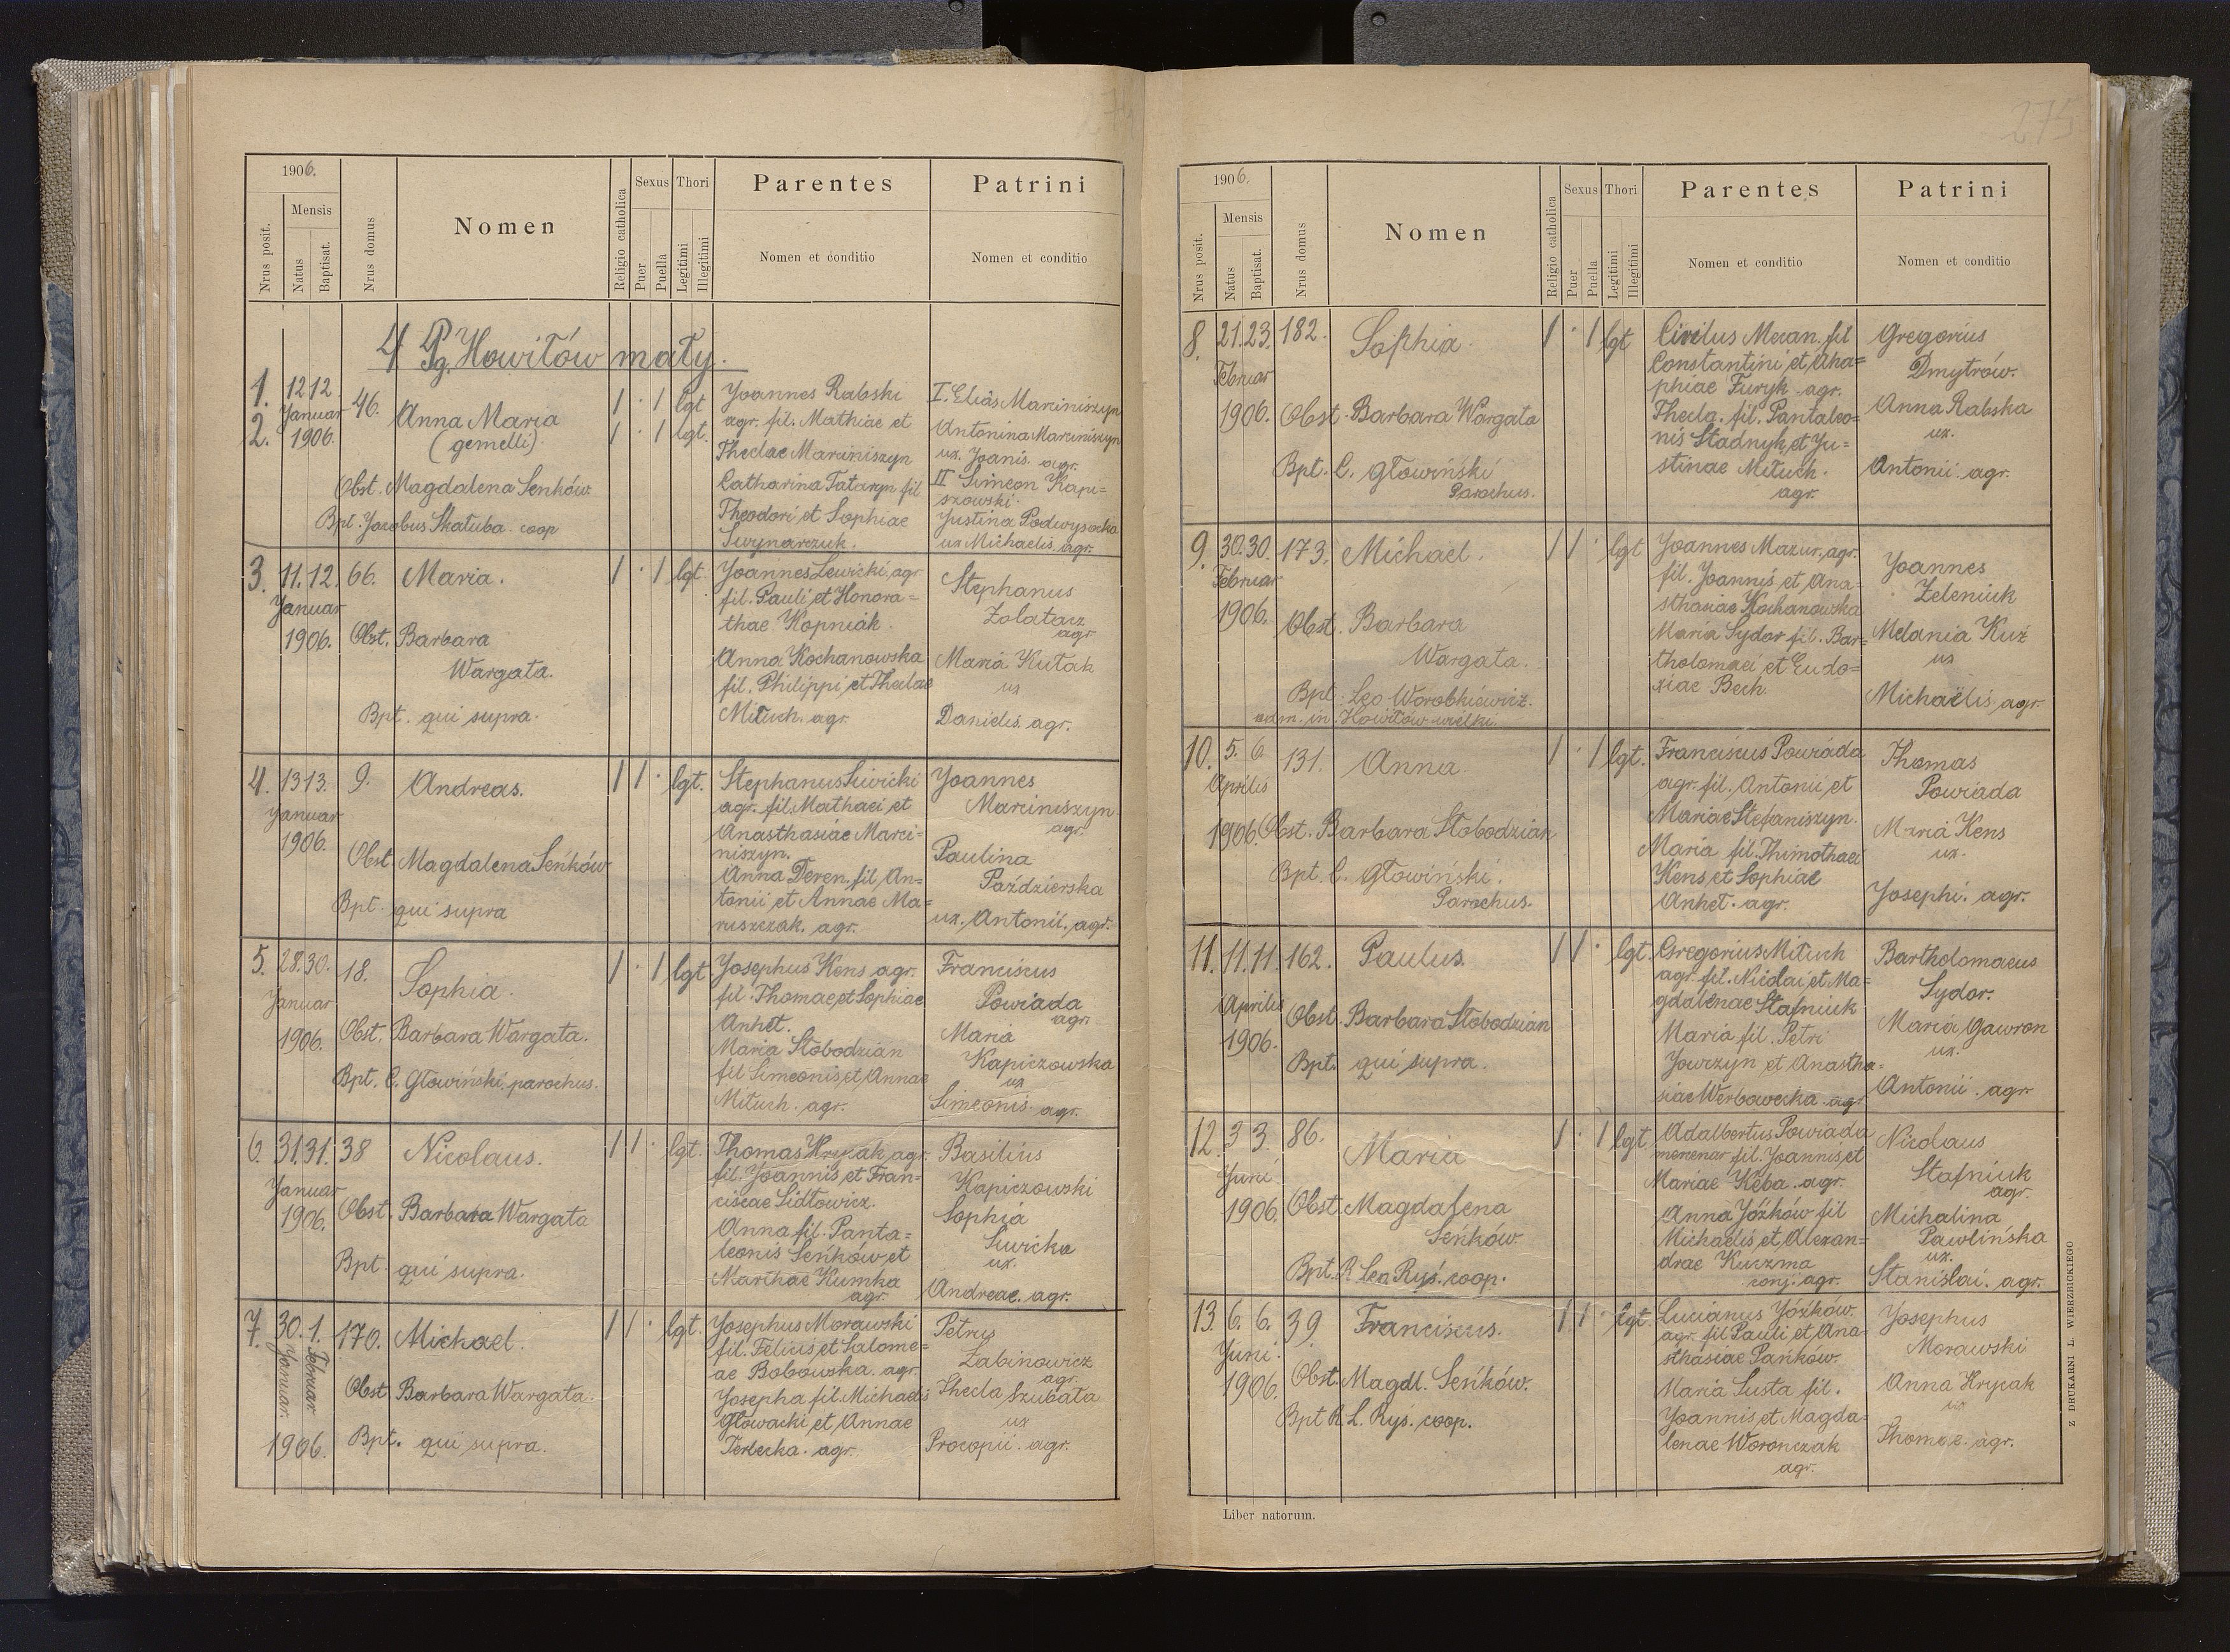 274
1906.
Nrus posit.
Mensis
Natus
Baptisat.
Nrus domus
Nomen
Religio catholica
Sexus
Puer
Puella
Thori
Legitimi
Illegitimi
Parentes
Nomen et conditio
Patrini
Nomen et conditio
4 Pg. Howiłów mały.
1. 12 12
2. Januar 46.
1906.
Anna Maria
(gemelli).
Obst. Magdalena Seńków
Bpt. Jacobus Skałuba coop
1 · 1 lgt
1 · 1 lgt.
Joannes Rabski
agr. fil. Mathiae et
Theclae Marciniszyn
Catharina Tataryn fil
Theodori et Sophiae
Swynarczuk.
I. Elias Marciniszyn
Antonina Marciniszyn
ux. Joanis. agr.
II Simeon Kapi=
szowski
Justina Podwysocka
ux Michaelis. agr.
3. 11. 12. 66. Maria.
Januar
1906. Obst. Barbara
Wargata.
Bpt. qui supra.
1 · 1 lgt.
Joannes Lewicki, agr
fil. Pauli et Honora=
thae Kopniak.
Anna Kochanowska
fil. Philippi et Theclae
Mituch. agr.
Stephanus
Zolatacz
agr
Maria Kutak
ux
Danielis. agr.
4. 13 13. 9. Andreas.
Januar
1906.
Obst. Magdalena Seńków
Bpt. qui supra
1 1 · lgt.
Stephanus Siwicki
agr. fil. Mathaei et
Anasthasiae Marci=
niszyn.
Anna Deren. fil. An=
tonii et Annae Ma=
ruszczak. agr.
Joannes
Marciniszyn
agr.
Paulina
Paździerska
ux. Antonii. agr.
5. 28. 30. 18. Sophia.
Januar
1906. Obst. Barbara Wargata.
Bpt. C. Głowiński, parochus.
1 · 1 lgt
Josephus Kens agr.
fil. Thomae et Sophiae
Anhet.
Maria Słobodzian
fil Simeonis, et Annae
Mituch. agr.
Franciscus
Powiada
agr.
Maria
Kapiczowska
ux
Simeonis. agr.
6. 31. 31. 38 Nicolaus.
Januar
1906. Obst. Barbara Wargata
Bpt. qui supra.
1 1 · lgt.
Thomas Hrycak, agr.
fil. Joannis, et Fran=
ciscae Sidłowicz.
Anna fil. Panta=
leonis Seńków, et
Marthae Humka
agr.
Basilius
Kapiczowski
Sophia
Siwicka
ux.
Andreae. agr.
7. 30. 1. 170. Michael.
Januar. Februar
1906.
Obst Barbara Wargata.
Bpt. qui supra.
1 1 · lgt.
Josephus Morawski
fil. Felicis, et Salome=
ae Bobowska. agr
Josepha fil. Michaelis
Głowacki et Annae
Terlecka. agr.
Petrus
Zabinowicz
agr.
Thecla Szubata
ux
Procopii. agr.
275
1906.
Nrus posit.
Mensis
Natus
Baptisat.
Nrus domus
Nomen
Religio catholica
Sexus
Puer
Puella
Thori
Legitimi
Illegitimi
Parentes
Nomen et conditio
Patrini
Nomen et conditio
8. 21. 23. 182. Sophia.
Februar
1906. Obst. Barbara Wargata
Bpt. C. Głowiński
Parochus.
1 · 1 lgt
Constantini, et Aha=
phiae Furyk. agr.
Thecla. fil. Pantaleo=
nis Stadnyk, et Ju=
stinae Mituch.
agr.
Gregorius
Dmytrów.
Anna Rabska
ux.
Antonii. agr.
9. 30. 30. 173. Michael.
Februar
1906. Obst. Barbara
Wargata.
Bpt. Leo Worobkiewicz.
adm. in Howiłów wielki.
1 1 · lgt
Joannes Mazur, agr.
fil. Joannis, et Ana=
sthasiae Kochanowska
Maria Sydor fil. Bar=
tholomaei et Eudo=
xiae Bech.
Joannes
Zeleniuk
Melania Kuź
ux
Michaelis agr.
10. 5. 6 131. Anna.
Aprilis
1906. Obst. Barbara Słobodzian
Bpt. C. Głowiński.
Parochus.
1 · 1 lgt.
Franciscus Powiada
agr. fil. Antonii, et
Mariae Stefaniszyn.
Maria fil. Thimothaei
Kens, et Sophiae
Anhet. agr.
Thomas
Powiada
Maria Kens
ux.
Josephi. agr.
11. 11. 11. 162. Paulus.
Aprilis
1906.
Obst. Barbara Słobodzian
Bpt. qui supra.
1 1 · lgt.
Gregorius Mituch
agr. fil. Nicolai, et Ma=
gdalenae Stafniuk.
Maria fil. Petri
Jowczyn et Anastha=
siae Werbowecka. agr
Bartholomaeus
Sydor.
Maria Gawron
ux.
Antonii. agr
12. 3 3. 86. Maria
Juni.
1906. Obst. Magdalena
Seńków.
Bpt. R. Leo Ryś. coop.
1 · 1 lgt
Adalbertus Powiada
fil. Joannis, et
Mariae Kęba. agr.
Anna Jóźków fil
Michaelis, et Alexan=
drae Kuczma
conj. agr.
Nicolaus
Stafniuk
agr.
Michalina
Pawlińska
ux.
Stanislai. agr.
13. 6. 6. 39. Franciscus.
Juni.
1906. Obst. Magdl. Seńków.
Bpt R. L. Ryś. coop.
1 1 · lgt.
Lucianus Jóźków.
agr. fil Pauli et Ana=
sthasiae Pańków.
Maria Susta fil.
Joannis, et Magda=
lenae Woronczak
agr.
Josephus
Morawski
Anna Hrycak
ux
Thomae. agr.
Liber natorum.
Z DRUKARNI L. WIERZBICKIEGO